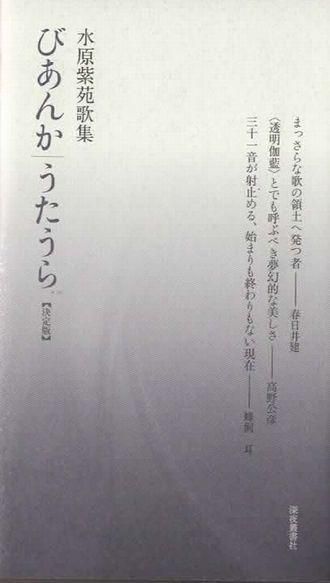 まっさらな歌の領土へ発つ者――春日井建
〈透明伽藍〉とでも呼ぶべき夢幻的な美しさ――高野公彦
三十一音が射止める、始まりも終わりもない現在――蜂飼 耳
深夜叢書社
水原紫苑歌集
びあんか|うたうら【決定版】